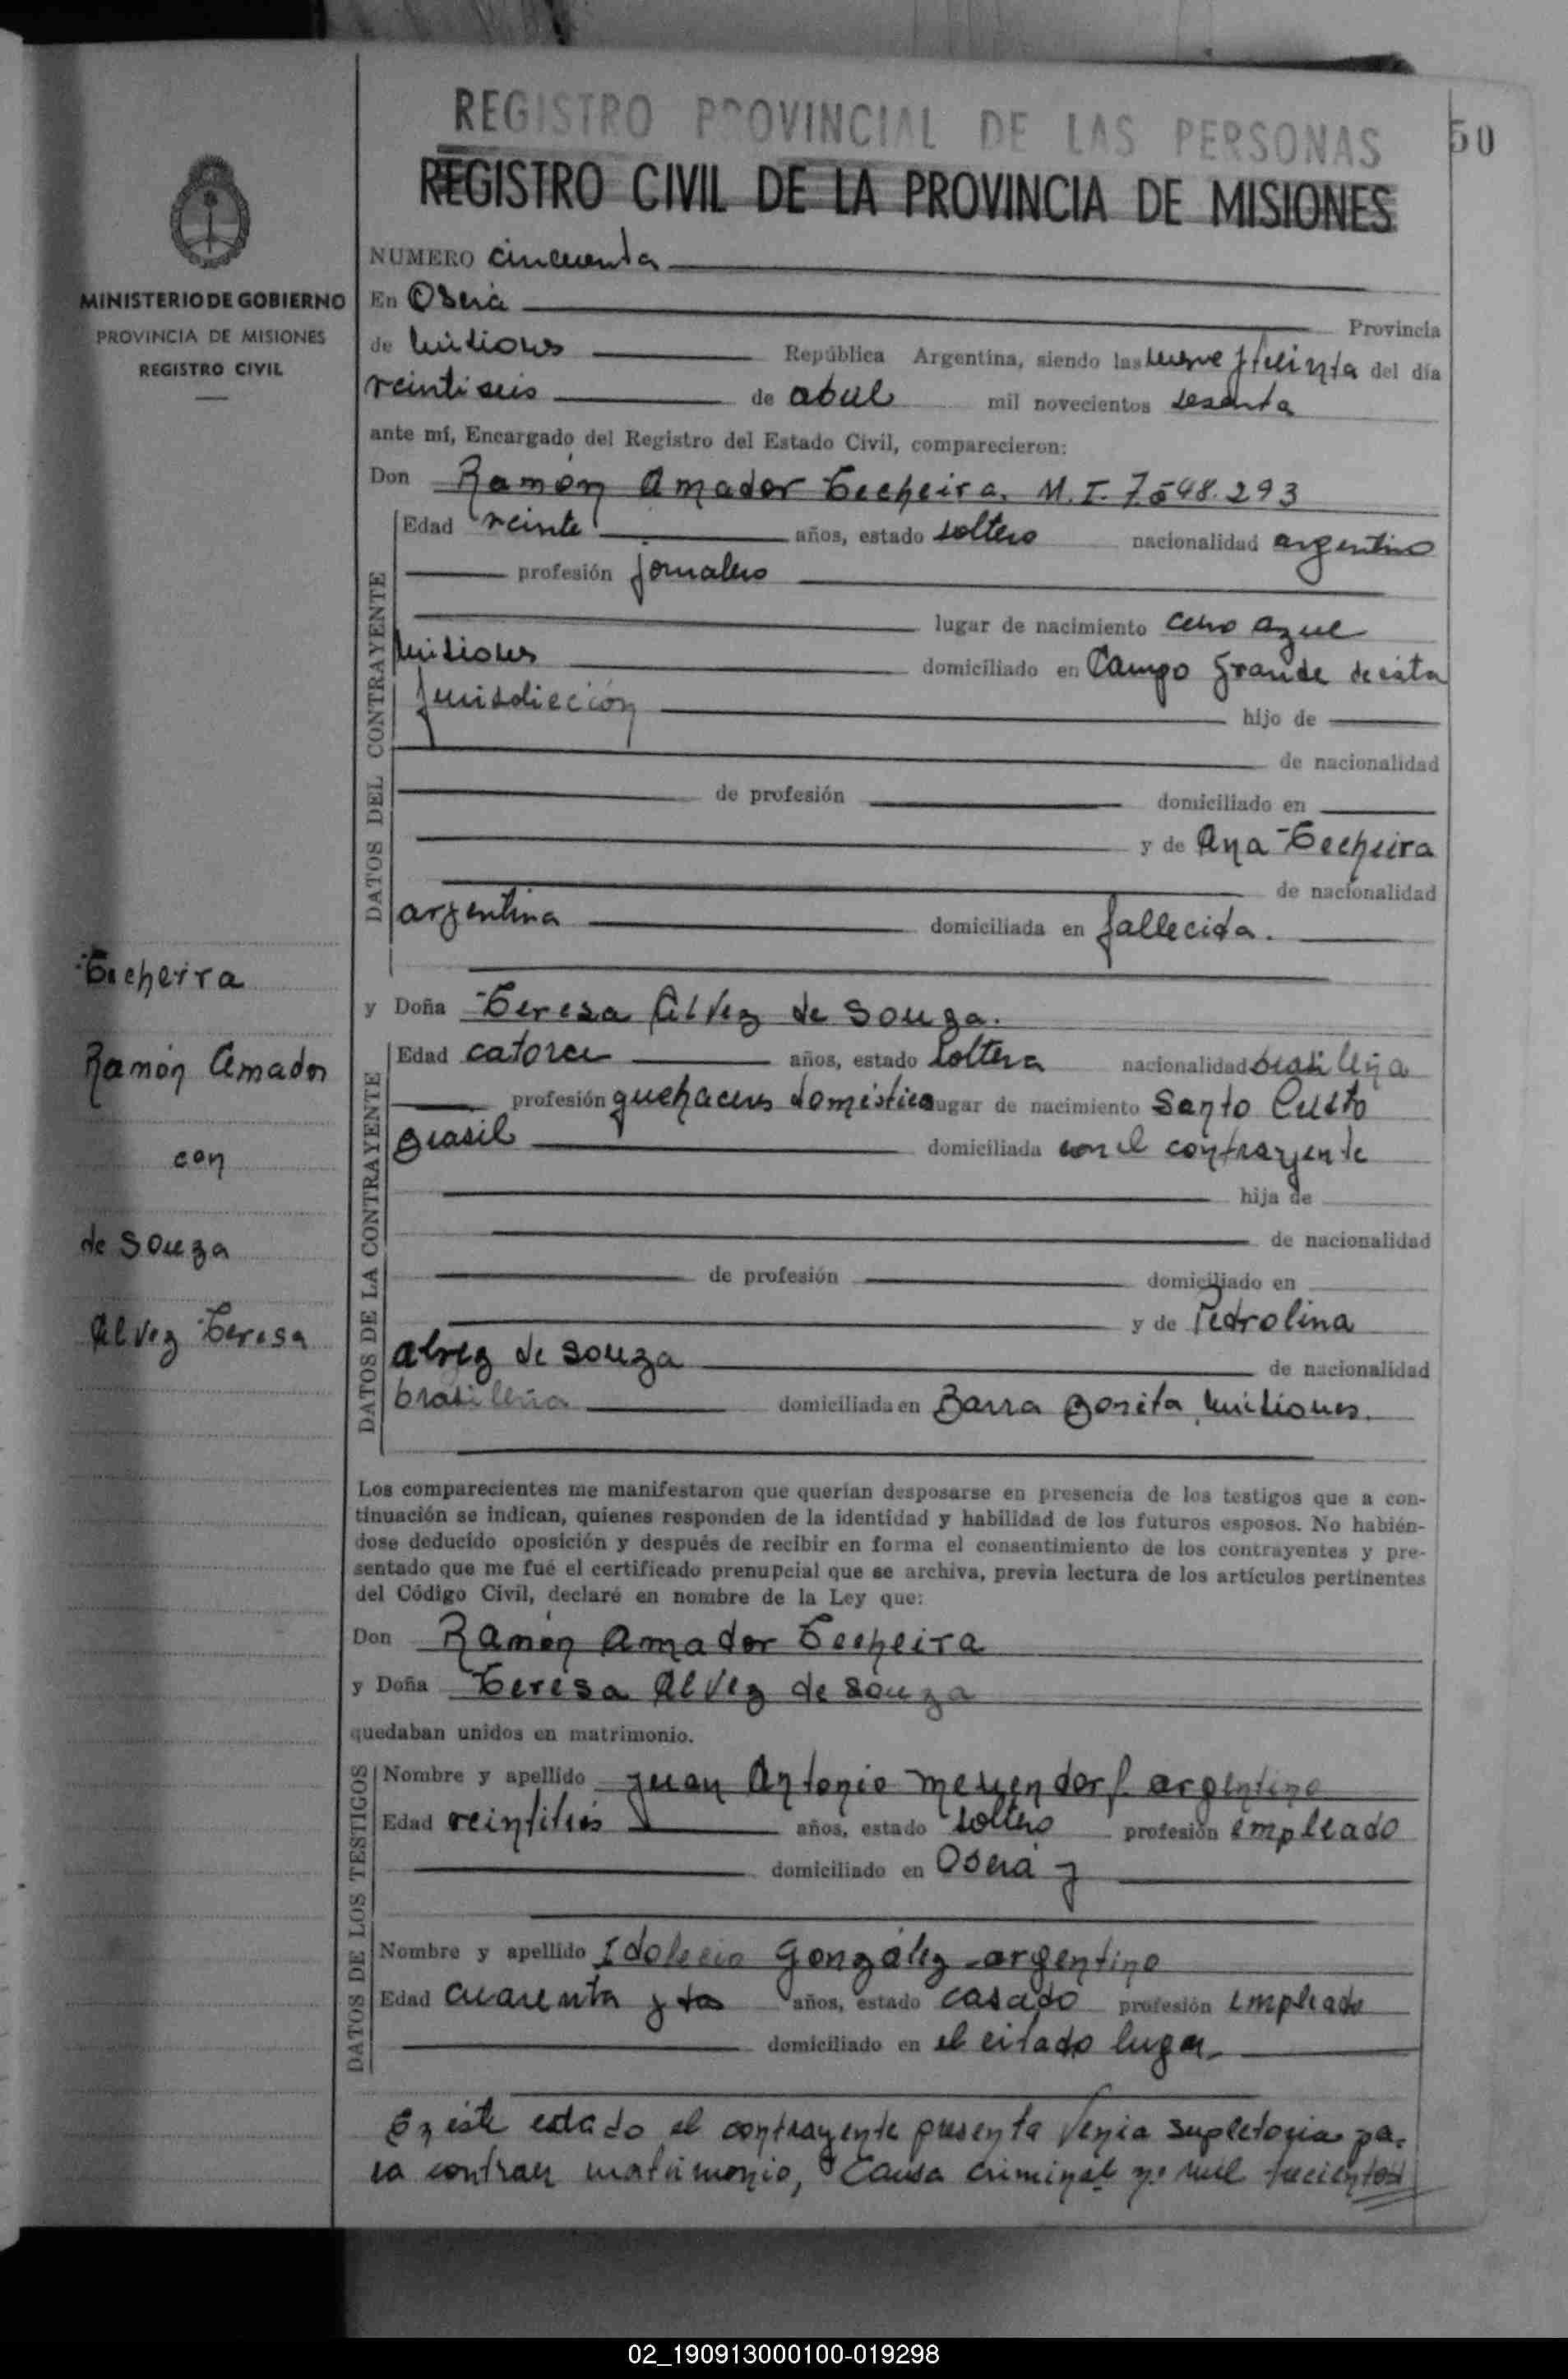 REGISTRO PROVINCIAL DE LAS PERSONAS
50
REGISTRO CIVIL DE LA PROVINCIA DE MISIONES
MINISTERIO DE GOBIERNO
PROVINCIA DE MISIONES
REGISTRO CIVIL
NUMERO cincuenta
En Oberá Provincia
de Misiones República Argentina, siendo las nueve y treinta del día
veintiseis de abril mil novecientos sesenta
ante mí, Encargado del Registro del Estado Civil, comparecieron:
Don Ramón Amador Techeira. M.I. 7.548.293
DATOS DEL CONTRAYENTE
Edad veinte años, estado soltero nacionalidad argentino
profesión jornalero
lugar de nacimiento Cerro Azul
Misiones domiciliado en Campo Grande de esta
jurisdiección hijo de
de nacionalidad
de profesión domiciliado en
y de Ana Techeira
de nacionalidad
argentina domiciliada en fallecida.
Techeira
Ramón Amador
con
de Souza
Alvez Teresa
y Doña Teresa Alvez de Souza.
DATOS DE LA CONTRAYENTE
Edad catorce años, estado soltera nacionalidad brasileña
profesión quehaceres domésticos lugar de nacimiento Santo Cristo
Brasil domiciliada con el contrayente
hija de
de nacionalidad
de profesión domiciliado en
y de Pedrolina
Alvez de Souza de nacionalidad
brasileña domiciliada en Barra Bonita, Misiones.
Los comparecientes me manifestaron que querían desposarse en presencia de los testigos que a con-
tinuación se indican, quienes responden de la identidad y habilidad de los futuros esposos. No habién-
dose deducido oposición y después de recibir en forma el consentimiento de los contrayentes y pre-
sentado que me fué el certificado prenupcial que se archiva, previa lectura de los artículos pertinentes
del Código Civil, declaré en nombre de la Ley que:
Don Ramón Amador Techeira
y Doña Teresa Alvez de Souza
quedaban unidos en matrimonio.
DATOS DE LOS TESTIGOS
Nombre y apellido Juan Antonio argentino
Edad veintitrés años, estado soltero profesión empleado
domiciliado en Oberá y
Nombre y apellido González argentino
Edad cuarenta y dos años, estado casado profesión empleado
domiciliado en el citado lugar.
En este estado el contrayente presenta Venia Supletoria pa-
ra contraer matrimonio, Causa criminal nº mil trecientos
02_190913000100-019298